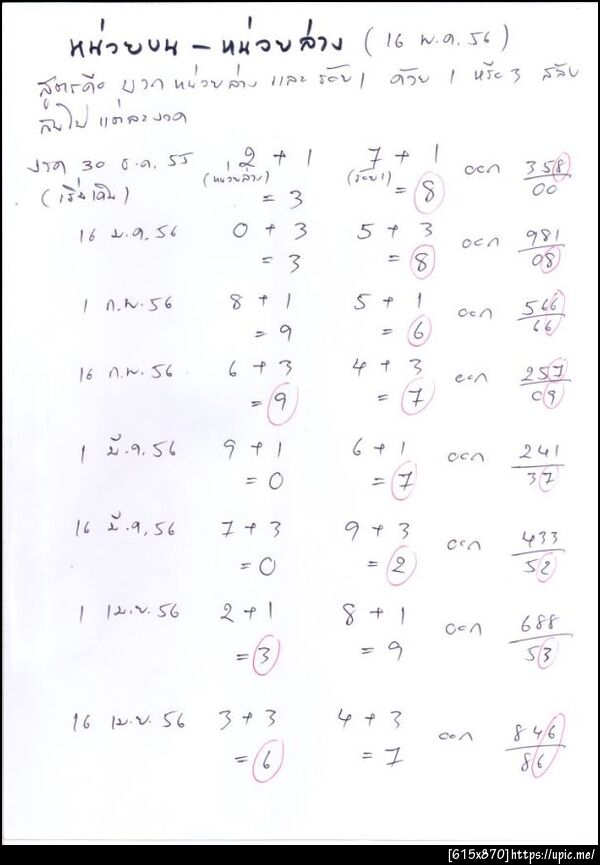 หน่วยบน - หน่วยล่าง ( 16 พ.ค. 56 )
สูตรคือ บวก หน่วยล่าง และ ร้อย 1 ด้วย 1 หรือ 3 สลับ
กันไป แต่ละงวด
งวด 30 ธ.ค. 55 2 + 1 7 + 1 ออก 358
(เริ่มเดิน) (หน่วยล่าง) = 3 (ร้อย1) = 8 00
16 ม.ค. 56 0 + 3 5 + 3 ออก 981
= 3 = 8 08
1 ก.พ. 56 8 + 1 5 + 1 ออก 566
= 9 = 6 66
16 ก.พ. 56 6 + 3 4 + 3 ออก 257
= 9 = 7 09
1 มี.ค. 56 9 + 1 6 + 1 ออก 241
= 0 = 7 37
16 มี.ค. 56 7 + 3 9 + 3 ออก 433
= 0 = 2 52
1 เม.ย. 56 2 + 1 8 + 1 ออก 688
= 3 = 9 53
16 เม.ย. 56 3 + 3 4 + 3 ออก 846
= 6 = 7 86
[615x870]https://upic.me/